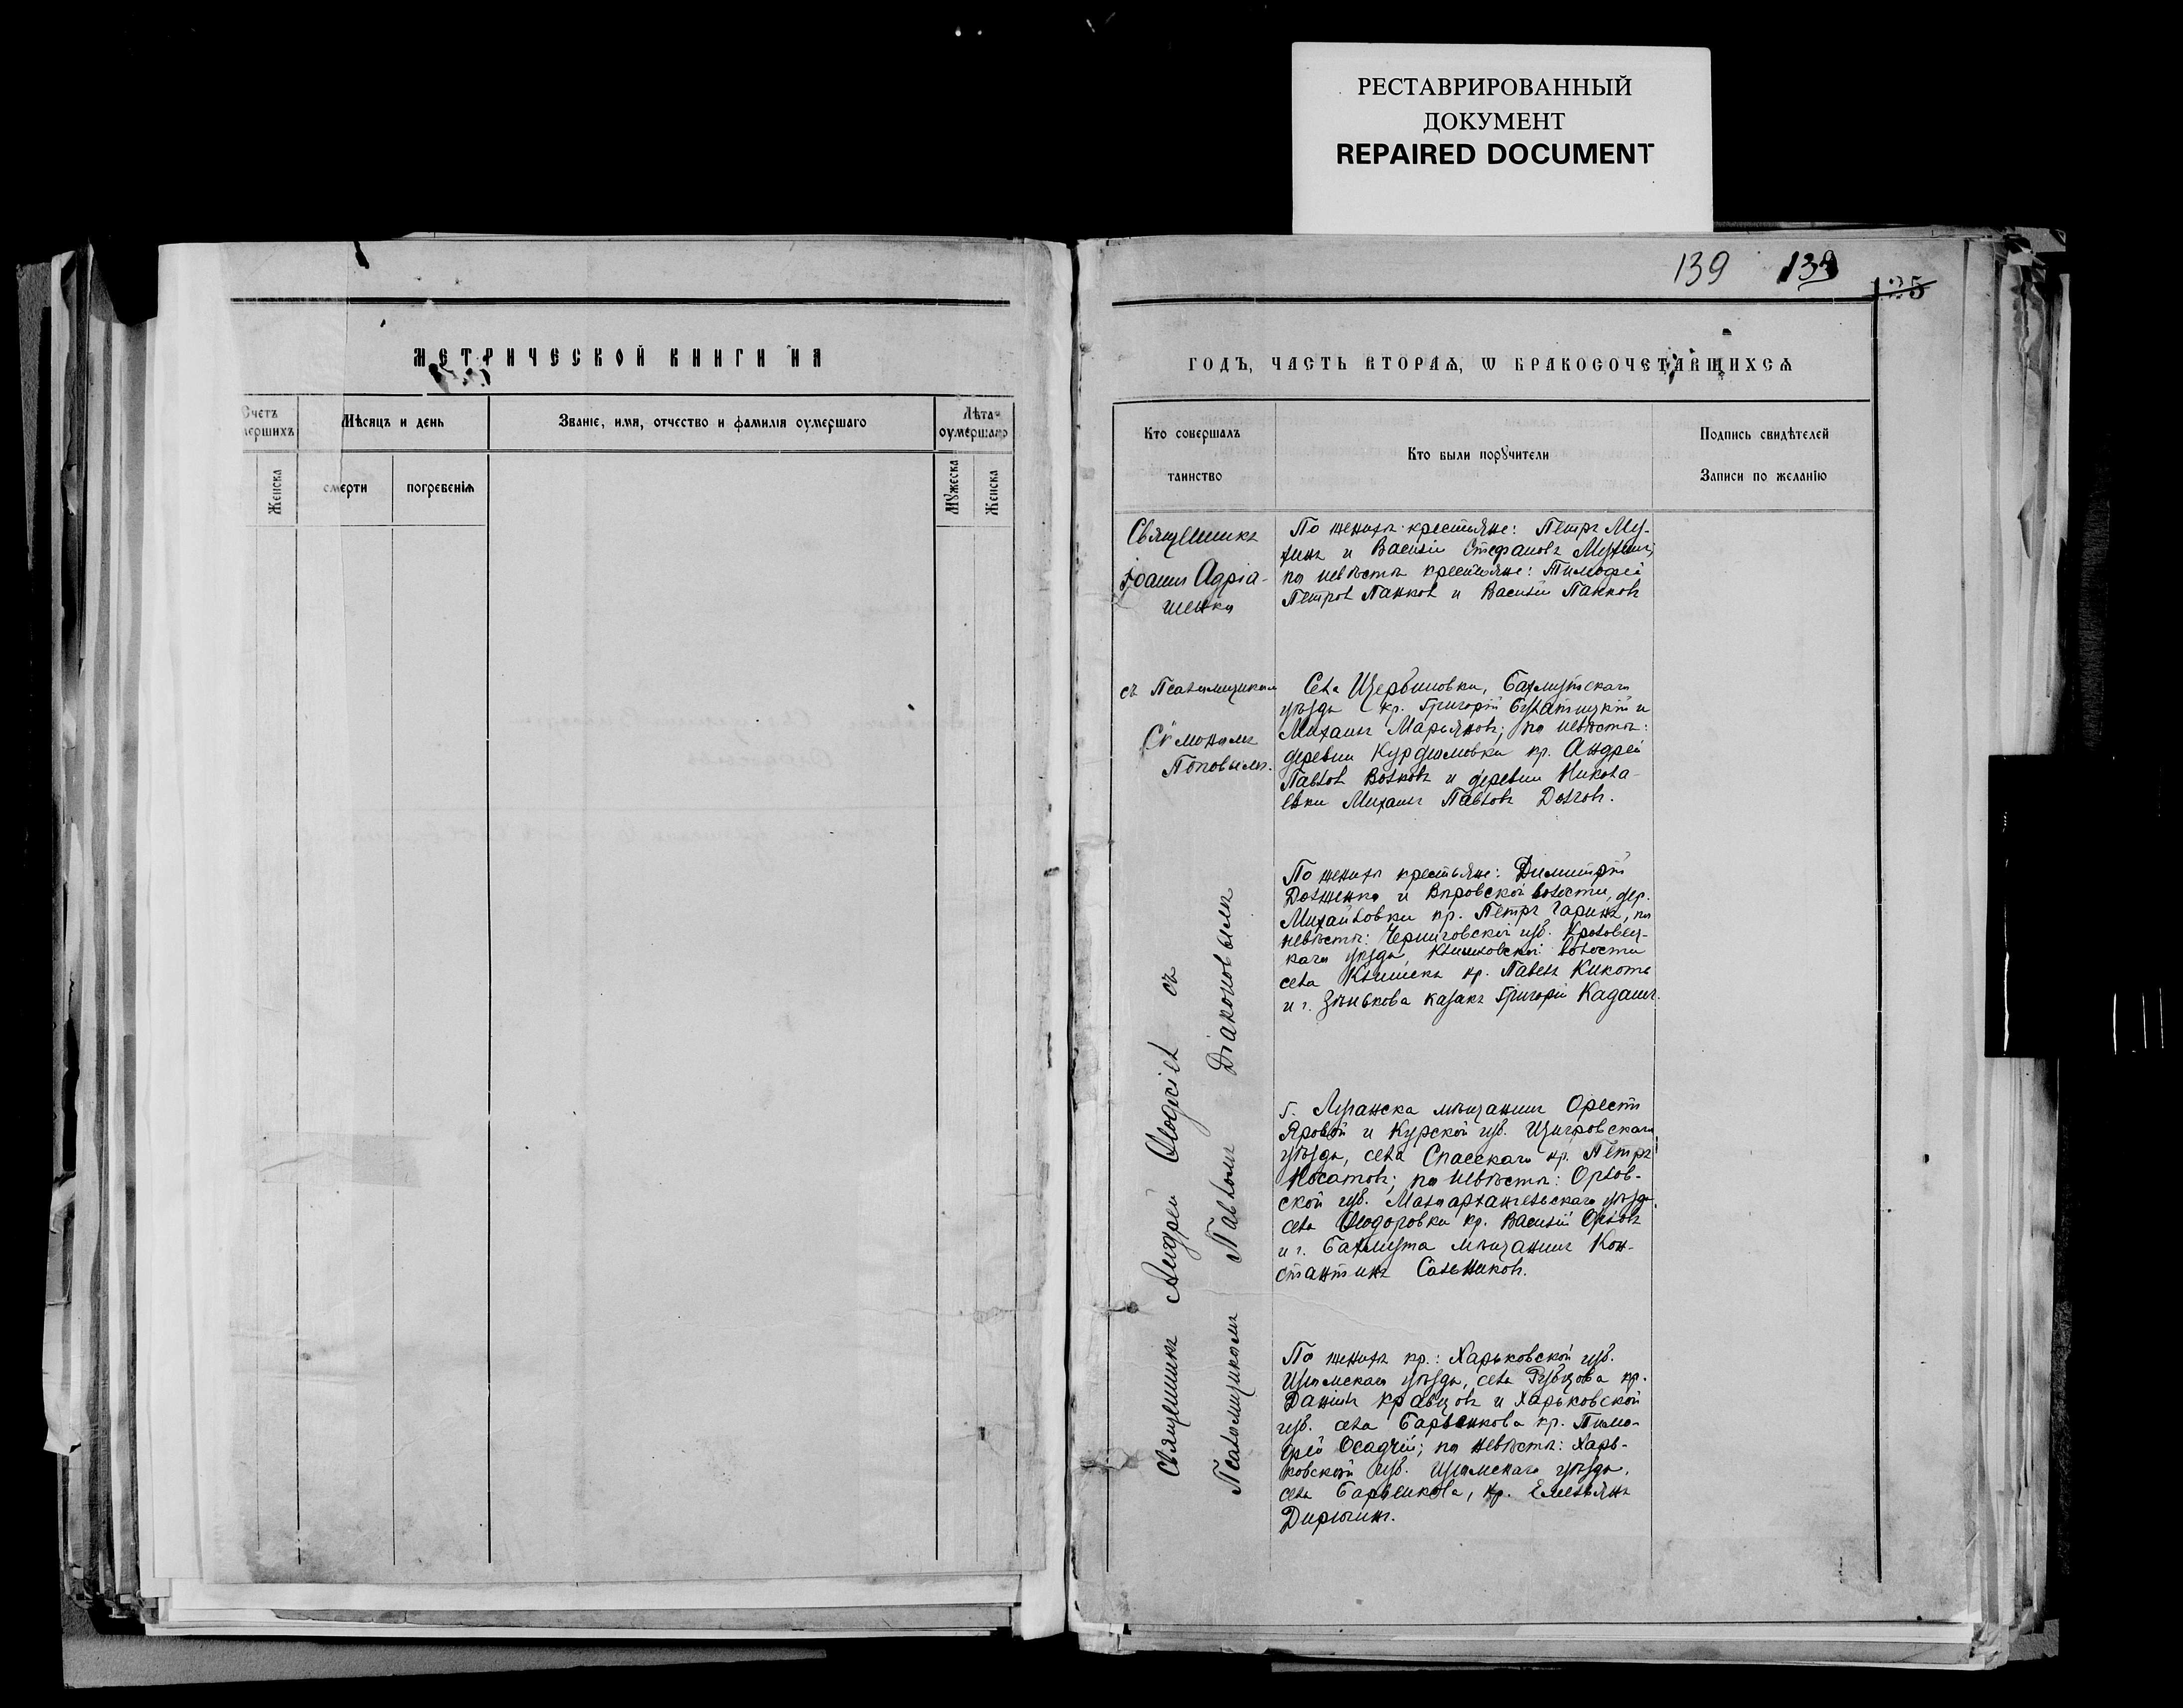 РЕСТАВРИРОВАННЫЙ
ДОКУМЕНТ
REPAIRED DOCUMENT
МЕТРИЧЕСКОЙ КНИГИ НА
Счетъ
Мѣсяцъ и день
Званіе, имя, отчество и фамилія оумершаго
Лѣта
оумершаго
Женска
смерти
погребенія
Мꙋжеска
Женска
139 139
135
ГОДЪ, ЧАСТЬ ВТОРАѦ, Ѡ БРАКОСОЧЕТАВШИХСѦ
Кто совершалъ
таинство
Кто были порꙋчители
Подпись свидѣтелей
Записи по желанію
Священникъ
Іоаннъ Адріа-
шенко
съ Псаломщикомъ
Сѵмономъ
Поповымъ.
Священникъ Андрей Ѳлоринъ съ
Псаломщикомъ Павломъ Діаконовымъ
По женихѣ крестьяне: Петръ Му-
хинъ и Василій Стефановъ Мухинъ;
по невѣстѣ крестьяне: Тимофей
Петровъ Панковъ и Василій Панковъ
Села Щербиновки, Бахмутскаго
уѣзда кр. Григорій Булатицкій и
Михаилъ Марьяновъ; по невѣстѣ:
деревни Курдюмовки кр. Андрей
Павловъ Волковъ и деревни Никола-
евки Михаилъ Павловъ Долговъ.
По женихѣ крестьяне: Димитрій
Долженко и Вировской волости, дер.
Михайловки кр. Петръ Гаринъ, по
невѣстѣ: Черниговской губ. Кролевец-
каго уѣзда, Клишковской волости
села Клишекъ кр. Павелъ Кикоть
и г. Зѣнькова казакъ Григорій Кадашъ.
г. Луганска мѣщанинъ Орестъ
Яровой и Курской губ. Щигровскаго
уѣзда, села Спасскаго кр. Петръ
Косатовъ; по невѣстѣ: Орлов-
ской губ. Малоархангельскаго уѣзда
села Ѳедоровки кр. Василій Орловъ
и г. Бахмута мѣщанинъ Кон-
стантинъ Сальниковъ.
По женихѣ кр.: Харьковской губ.
Изюмскаго уѣзда, села Рубцова кр.
Даніилъ Кравцовъ и Харьковской
губ. села Барвенкова кр. Тимо-
фей Осадчій; по невѣстѣ: Харь-
ковской губ. Изюмскаго уѣзда,
села Барвенкова, кр. Емельянъ
Дирюгинъ.